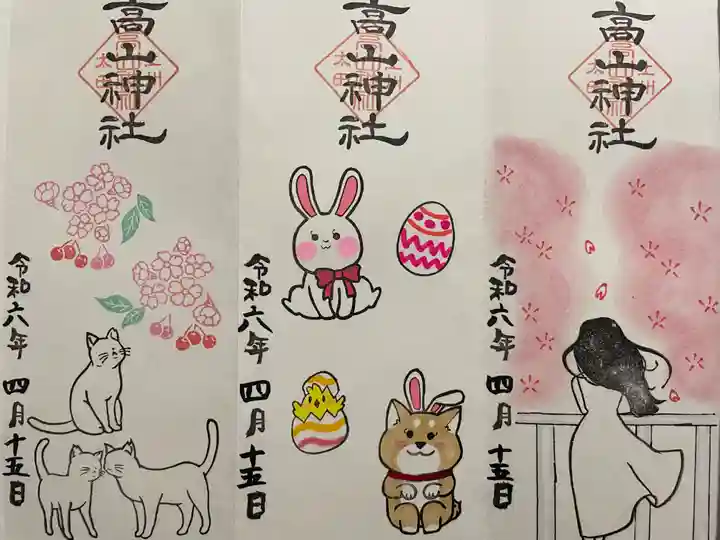 高山神社
令和六年 四月十五日
高山神社
令和六年 四月十五日
高山神社
令和六年 四月十五日